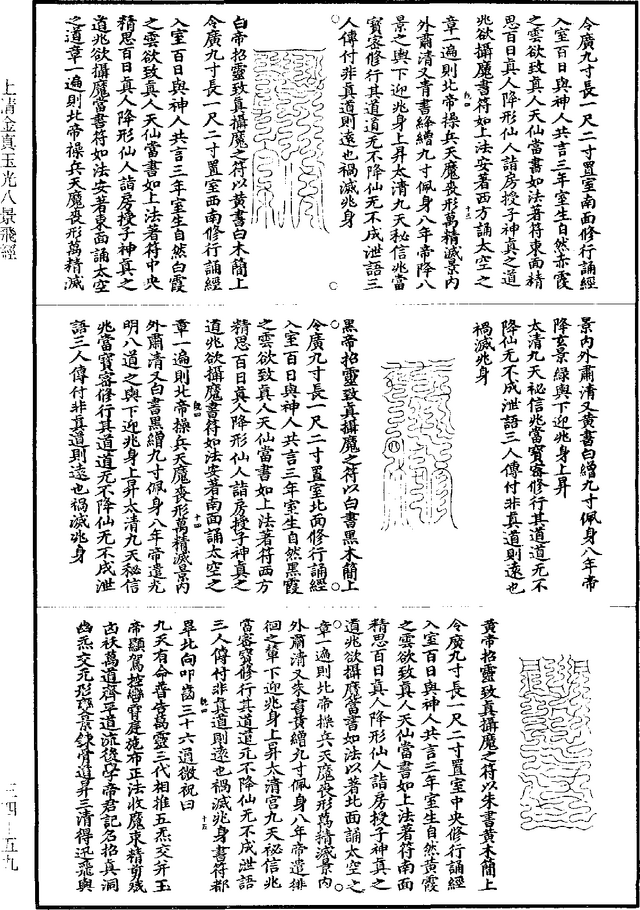 令廣九寸長一尺二寸置室南面修行誦經
入室百日與神人共言三年室生自然赤霞
之雲欲致真人天仙當書如上法著符東面精
思百日真人降形仙人詣房授子神真之道
兆欲攝魔書符如上法安著西方誦太空之
章一遍則北帝操兵天魔喪形萬精滅景內
外肅清又青書絳繒九寸佩身八年帝降八
景之輿下迎兆身上昇太清九天秘信兆當
寶密修行其道道无不降仙无不成泄語三
人傳付非真道則遠也禍滅兆身
白帝招靈致真攝魔之符以黃書白木簡上
令廣九寸長一尺二寸置室西南修行誦經
入室百日與神人共言三年室生自然白霞
之雲欲致真人天仙當書如上法著符中央
精思百日真人降形仙人詣房授子神真之
道兆欲攝魔當書符如法安著東面誦太空
之道章一遍則北帝操兵天魔喪形萬精滅
景內外肅清又黃書白繒九寸佩身八年帝
降玄景綠輿下迎兆身上昇
太清九天秘信兆當寶密修行其道道无不
降仙无不成泄語三人傳付非真道則遠也
禍滅兆身
黑帝招靈致真攝魔之符以白書黑木簡上
令廣九寸長一尺二寸置室北面修行誦經
入室百日與神人共言三年室生自然黑霞
之雲欲致真人天仙當書如上法著符西方
精思百日真人降形仙人詣房授子神真之
道兆欲攝魔書符如法安著南面誦太空之
章一遍則北帝操兵天魔喪形萬精滅景內
外肅清又白書黑繒九寸佩身八年帝遣九
明八道之輿下迎兆身上昇太清九天秘信
兆當寶密修行其道道无不降仙无不成泄
語三人傳付非真道則遠也禍滅兆身
黃帝招靈致真攝魔之符以朱書黃木簡上
令廣九寸長一尺二寸置室中央修行誦經
入室百日與神人共言三年室生自然黃霞
之雲欲致真人天仙當書如上法著符南面
精思百日真人降形仙人詣房授子神真之
道兆欲攝魔當書如法以著北面誦太空之
章一遍則北帝操兵天魔喪形萬精滅景內
外肅清又朱書黃繒九寸佩身八年帝遣徘
徊之輦下迎兆身上昇太清宮九天秘信兆
當密寶修行其道道无不降仙无不成泄語
三人傳付非真道則遠也禍滅兆身書符都
畢北向叩齒三十六通微祝曰
九天有命普告萬靈三代相推五炁交并玉
帝顯駕控轡寶庭施布正法收魔束精剪殘
凶袄萬道齊平道流後學帝君記名招真洞
幽炁交无形變景鍊骨道昇三清得迅飛輿
上清金真玉光八景飛經
三四—五九